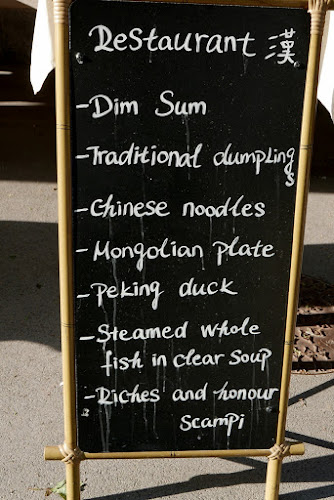 Restaurant 漢
-Dim Sum
-Traditional dumplings
-Chinese noodles
-Mongolian plate
-Peking duck
-Steamed whole
fish in clear soup
-Riches and honour
scampi